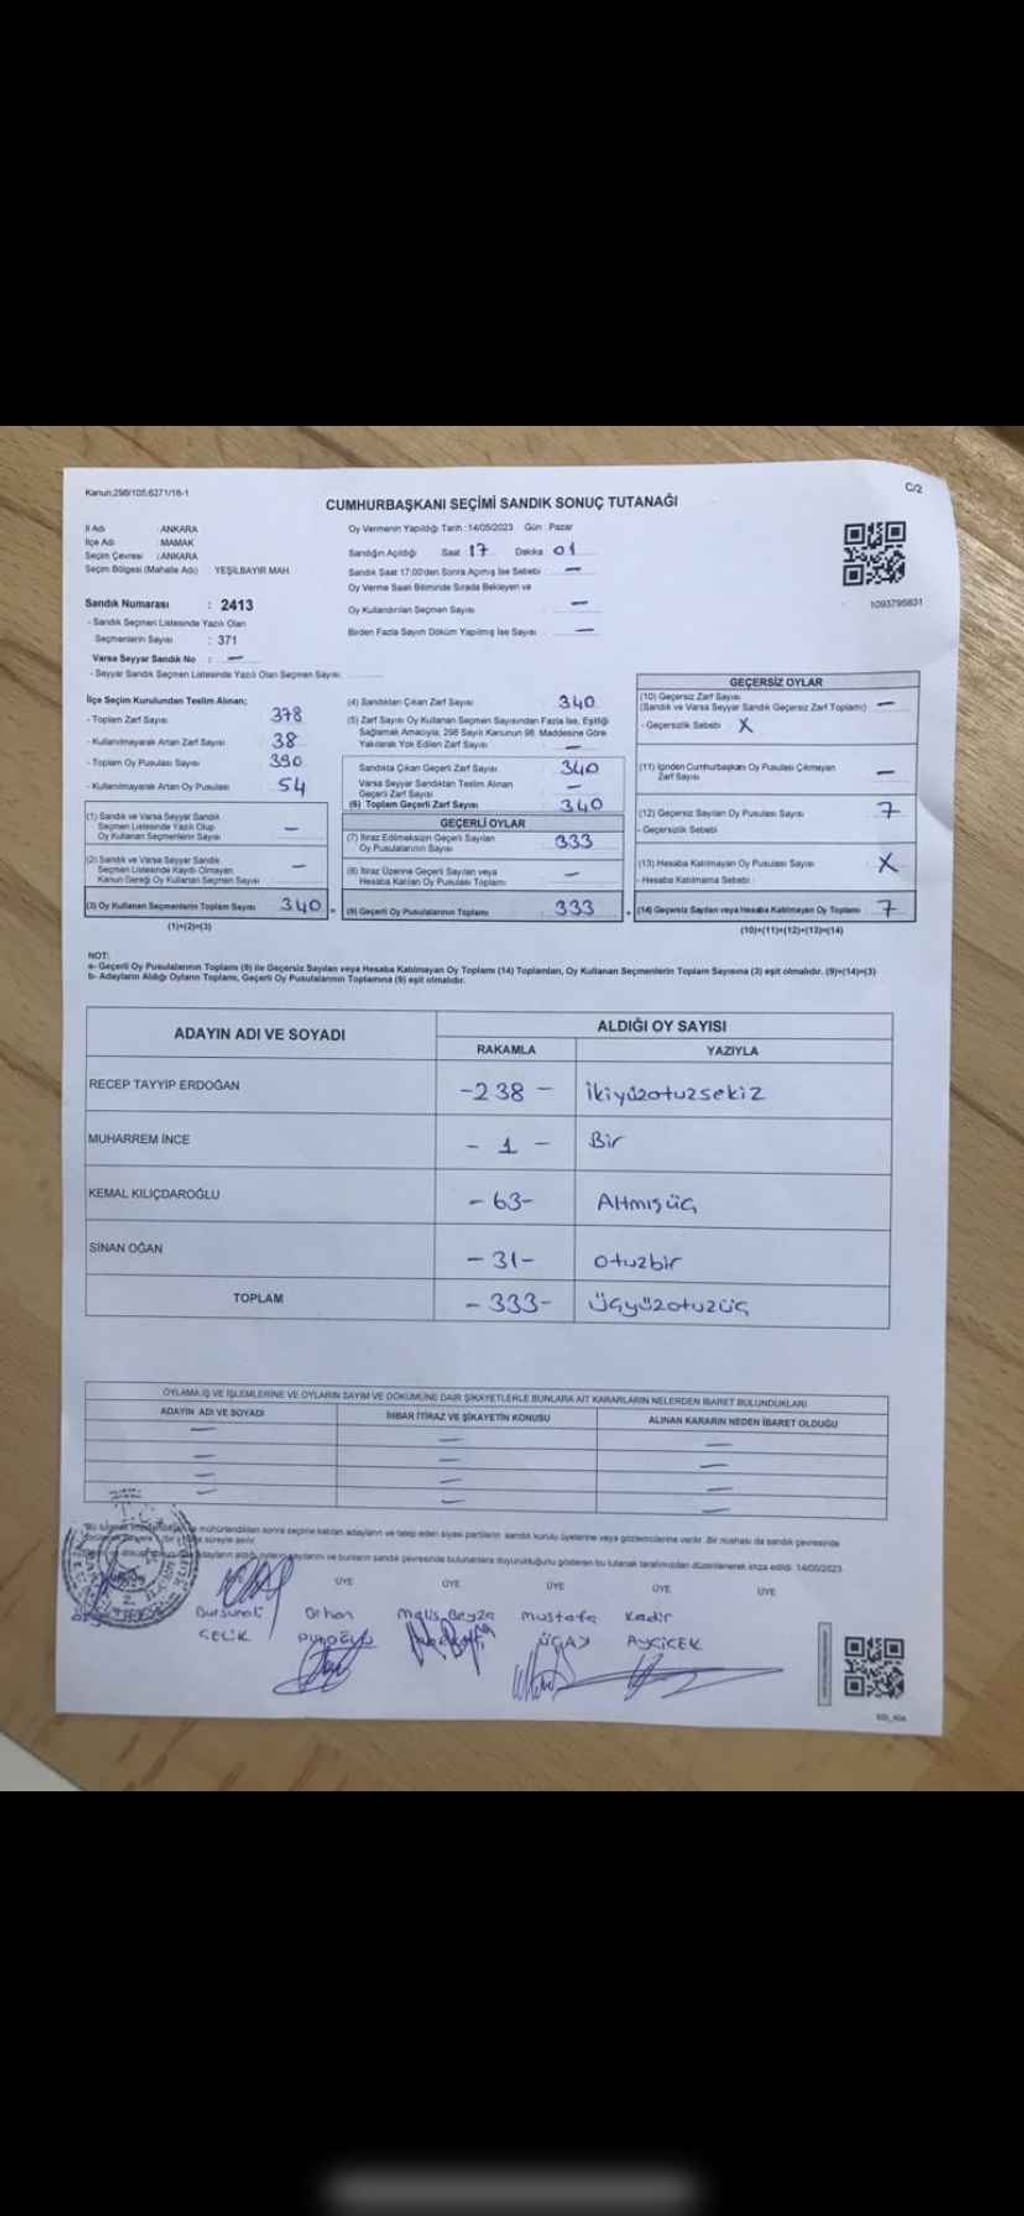 Kanun:298/105,6271/16-1
C/2
CUMHURBAŞKANI SEÇİMİ SANDIK SONUÇ TUTANAĞI
İl Adı : ANKARA
İlçe Adı : MAMAK
Seçim Çevresi : ANKARA
Seçim Bölgesi (Mahalle Adı) YEŞİLBAYIR MAH.
Sandık Numarası : 2413
- Sandık Seçmen Listesinde Yazılı Olan
Seçmenlerin Sayısı : 371
Varsa Seyyar Sandık No : —
- Seyyar Sandık Seçmen Listesinde Yazılı Olan Seçmen Sayısı
Oy Vermenin Yapıldığı Tarih : 14/05/2023 Gün : Pazar
Sandığın Açıldığı Saat 17 Dakika 01
Sandık Saat 17:00'den Sonra Açılmış İse Sebebi —
Oy Verme Saati Bitiminde Sırada Bekleyen ve
Oy Kullandırılan Seçmen Sayısı —
Birden Fazla Sayım Döküm Yapılmış İse Sayısı —
1093795631
İlçe Seçim Kurulundan Teslim Alınan:
- Toplam Zarf Sayısı 378
- Kullanılmayarak Artan Zarf Sayısı 38
- Toplam Oy Pusulası Sayısı 390
- Kullanılmayarak Artan Oy Pusulası 54
(1) Sandık ve Varsa Seyyar Sandık
Seçmen Listesinde Yazılı Olup
Oy Kullanan Seçmenlerin Sayısı —
(2) Sandık ve Varsa Seyyar Sandık
Seçmen Listesinde Kayıtlı Olmayan
Kanun Gereği Oy Kullanan Seçmen Sayısı —
(3) Oy Kullanan Seçmenlerin Toplam Sayısı 340
(1)+(2)=(3)
(4) Sandıktan Çıkan Zarf Sayısı 340
(5) Zarf Sayısı Oy Kullanan Seçmen Sayısından Fazla İse, Eşitliği
Sağlamak Amacıyla, 298 Sayılı Kanunun 98. Maddesine Göre
Yakılarak Yok Edilen Zarf Sayısı —
Sandıkta Çıkan Geçerli Zarf Sayısı 340
Varsa Seyyar Sandıktan Teslim Alınan
Geçerli Zarf Sayısı —
(6) Toplam Geçerli Zarf Sayısı 340
GEÇERLİ OYLAR
(7) İtiraz Edilmeksizin Geçerli Sayılan
Oy Pusulalarının Sayısı 333
(8) İtiraz Üzerine Geçerli Sayılan veya
Hesaba Katılan Oy Pusulası Toplamı —
(9) Geçerli Oy Pusulalarının Toplamı 333
GEÇERSİZ OYLAR
(10) Geçersiz Zarf Sayısı
(Sandık ve Varsa Seyyar Sandık Geçersiz Zarf Toplamı) —
- Geçersizlik Sebebi X
(11) İçinden Cumhurbaşkanı Oy Pusulası Çıkmayan
Zarf Sayısı —
(12) Geçersiz Sayılan Oy Pusulası Sayısı 7
- Geçersizlik Sebebi
(13) Hesaba Katılmayan Oy Pusulası Sayısı X
- Hesaba Katılmama Sebebi
(14) Geçersiz Sayılan veya Hesaba Katılmayan Oy Toplamı 7
(10)+(11)+(12)+(13)=(14)
NOT:
a- Geçerli Oy Pusulalarının Toplamı (9) ile Geçersiz Sayılan veya Hesaba Katılmayan Oy Toplamı (14) Toplamları, Oy Kullanan Seçmenlerin Toplam Sayısına (3) eşit olmalıdır. (9)+(14)=(3)
b- Adayların Aldığı Oyların Toplamı, Geçerli Oy Pusulalarının Toplamına (9) eşit olmalıdır.
ADAYIN ADI VE SOYADI
ALDIĞI OY SAYISI
RAKAMLA YAZIYLA
RECEP TAYYİP ERDOĞAN -238- ikiyüzotuzsekiz
MUHARREM İNCE - 1 - Bir
KEMAL KILIÇDAROĞLU -63- Altmışüç
SİNAN OĞAN -31- otuzbir
TOPLAM -333- üçyüzotuzüç
OYLAMA İŞ VE İŞLEMLERİNE VE OYLARIN SAYIM VE DÖKÜMÜNE DAİR ŞİKAYETLERLE BUNLARA AİT KARARLARIN NELERDEN İBARET BULUNDUKLARI
ADAYIN ADI VE SOYADI İHBAR İTİRAZ VE ŞİKAYETİN KONUSU ALINAN KARARIN NEDEN İBARET OLDUĞU
mühürlendikten sonra seçime katılan adayların ve talep eden siyasi partilerin sandık kurulu üyelerine veya gözlemcilerine verilir. Bir nüshası da sandık çevresinde
süreyle asılır.
adayların aldığı oyların sayılarını ve bunların sandık çevresinde bulunanlara duyurulduğunu gösteren bu tutanak tarafımızdan düzenlenerek imza edildi. 14/05/2023
ÜYE ÜYE ÜYE ÜYE ÜYE
Dursunali Orhan Melis Beyza Mustafa Kadir
ÇELİK ÜÇAY AYÇİÇEK